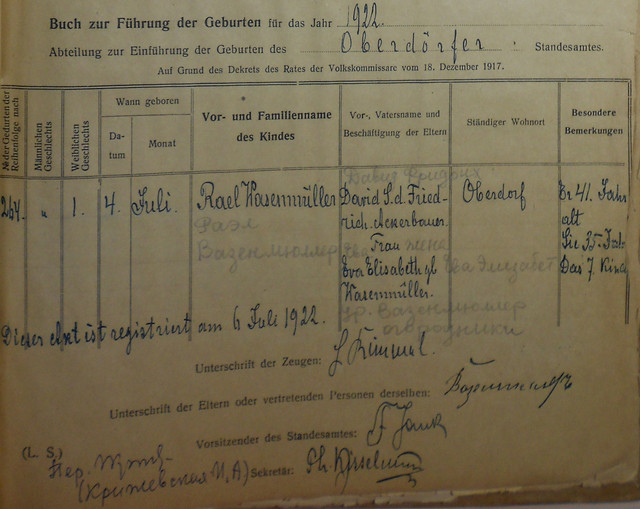 Buch zur Führung der Geburten für das Jahr 1922.
Abteilung zur Einführung der Geburten des Oberdörfer Standesamtes.
Auf Grund des Dekrets des Rates der Volkskommissare vom 18. Dezember 1917.
№ der Geburten der Reihenfolge nach
Männlichen Geschlechts
Weiblichen Geschlechts
Wann geboren
Da-
tum
Monat
Vor- und Familienname
des Kindes
Vor-, Vatersname und
Beschäftigung der Eltern
Ständiger Wohnort
Besondere
Bemerkungen
264. „ 1. 4. Juli.
Rael Wasenmüller
Раэл
Вазенмюллер
Давид Фридрих
David S. d. Fried-
rich. Ackerbauer.
Frau жена
Eva Elisabeth gb
Wasenmüller.
Ева Элизабет
Вазенмюллер
Oberdorf
Er 41. Jahr
alt
Sie 35. Jahr
Das 7. Kind
Dieser Akt ist registriert am 6 Juli 1922.
Unterschrift der Zeugen:
Unterschrift der Eltern oder vertretenden Personen derselben:
Vorsitzender des Standesamtes:
(L. S.)
Sekretär:
Пер.
(Крижевская И.А)